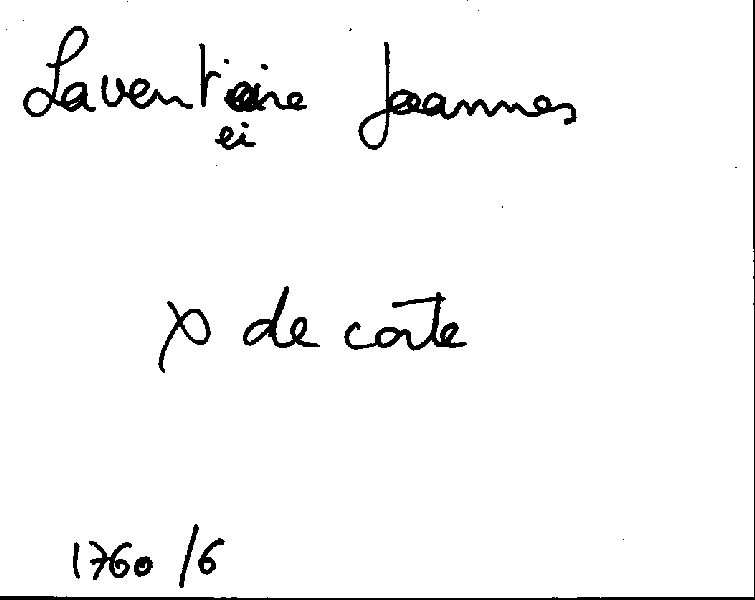 Laventeine Joannes
ei
x de corte
1760 /6